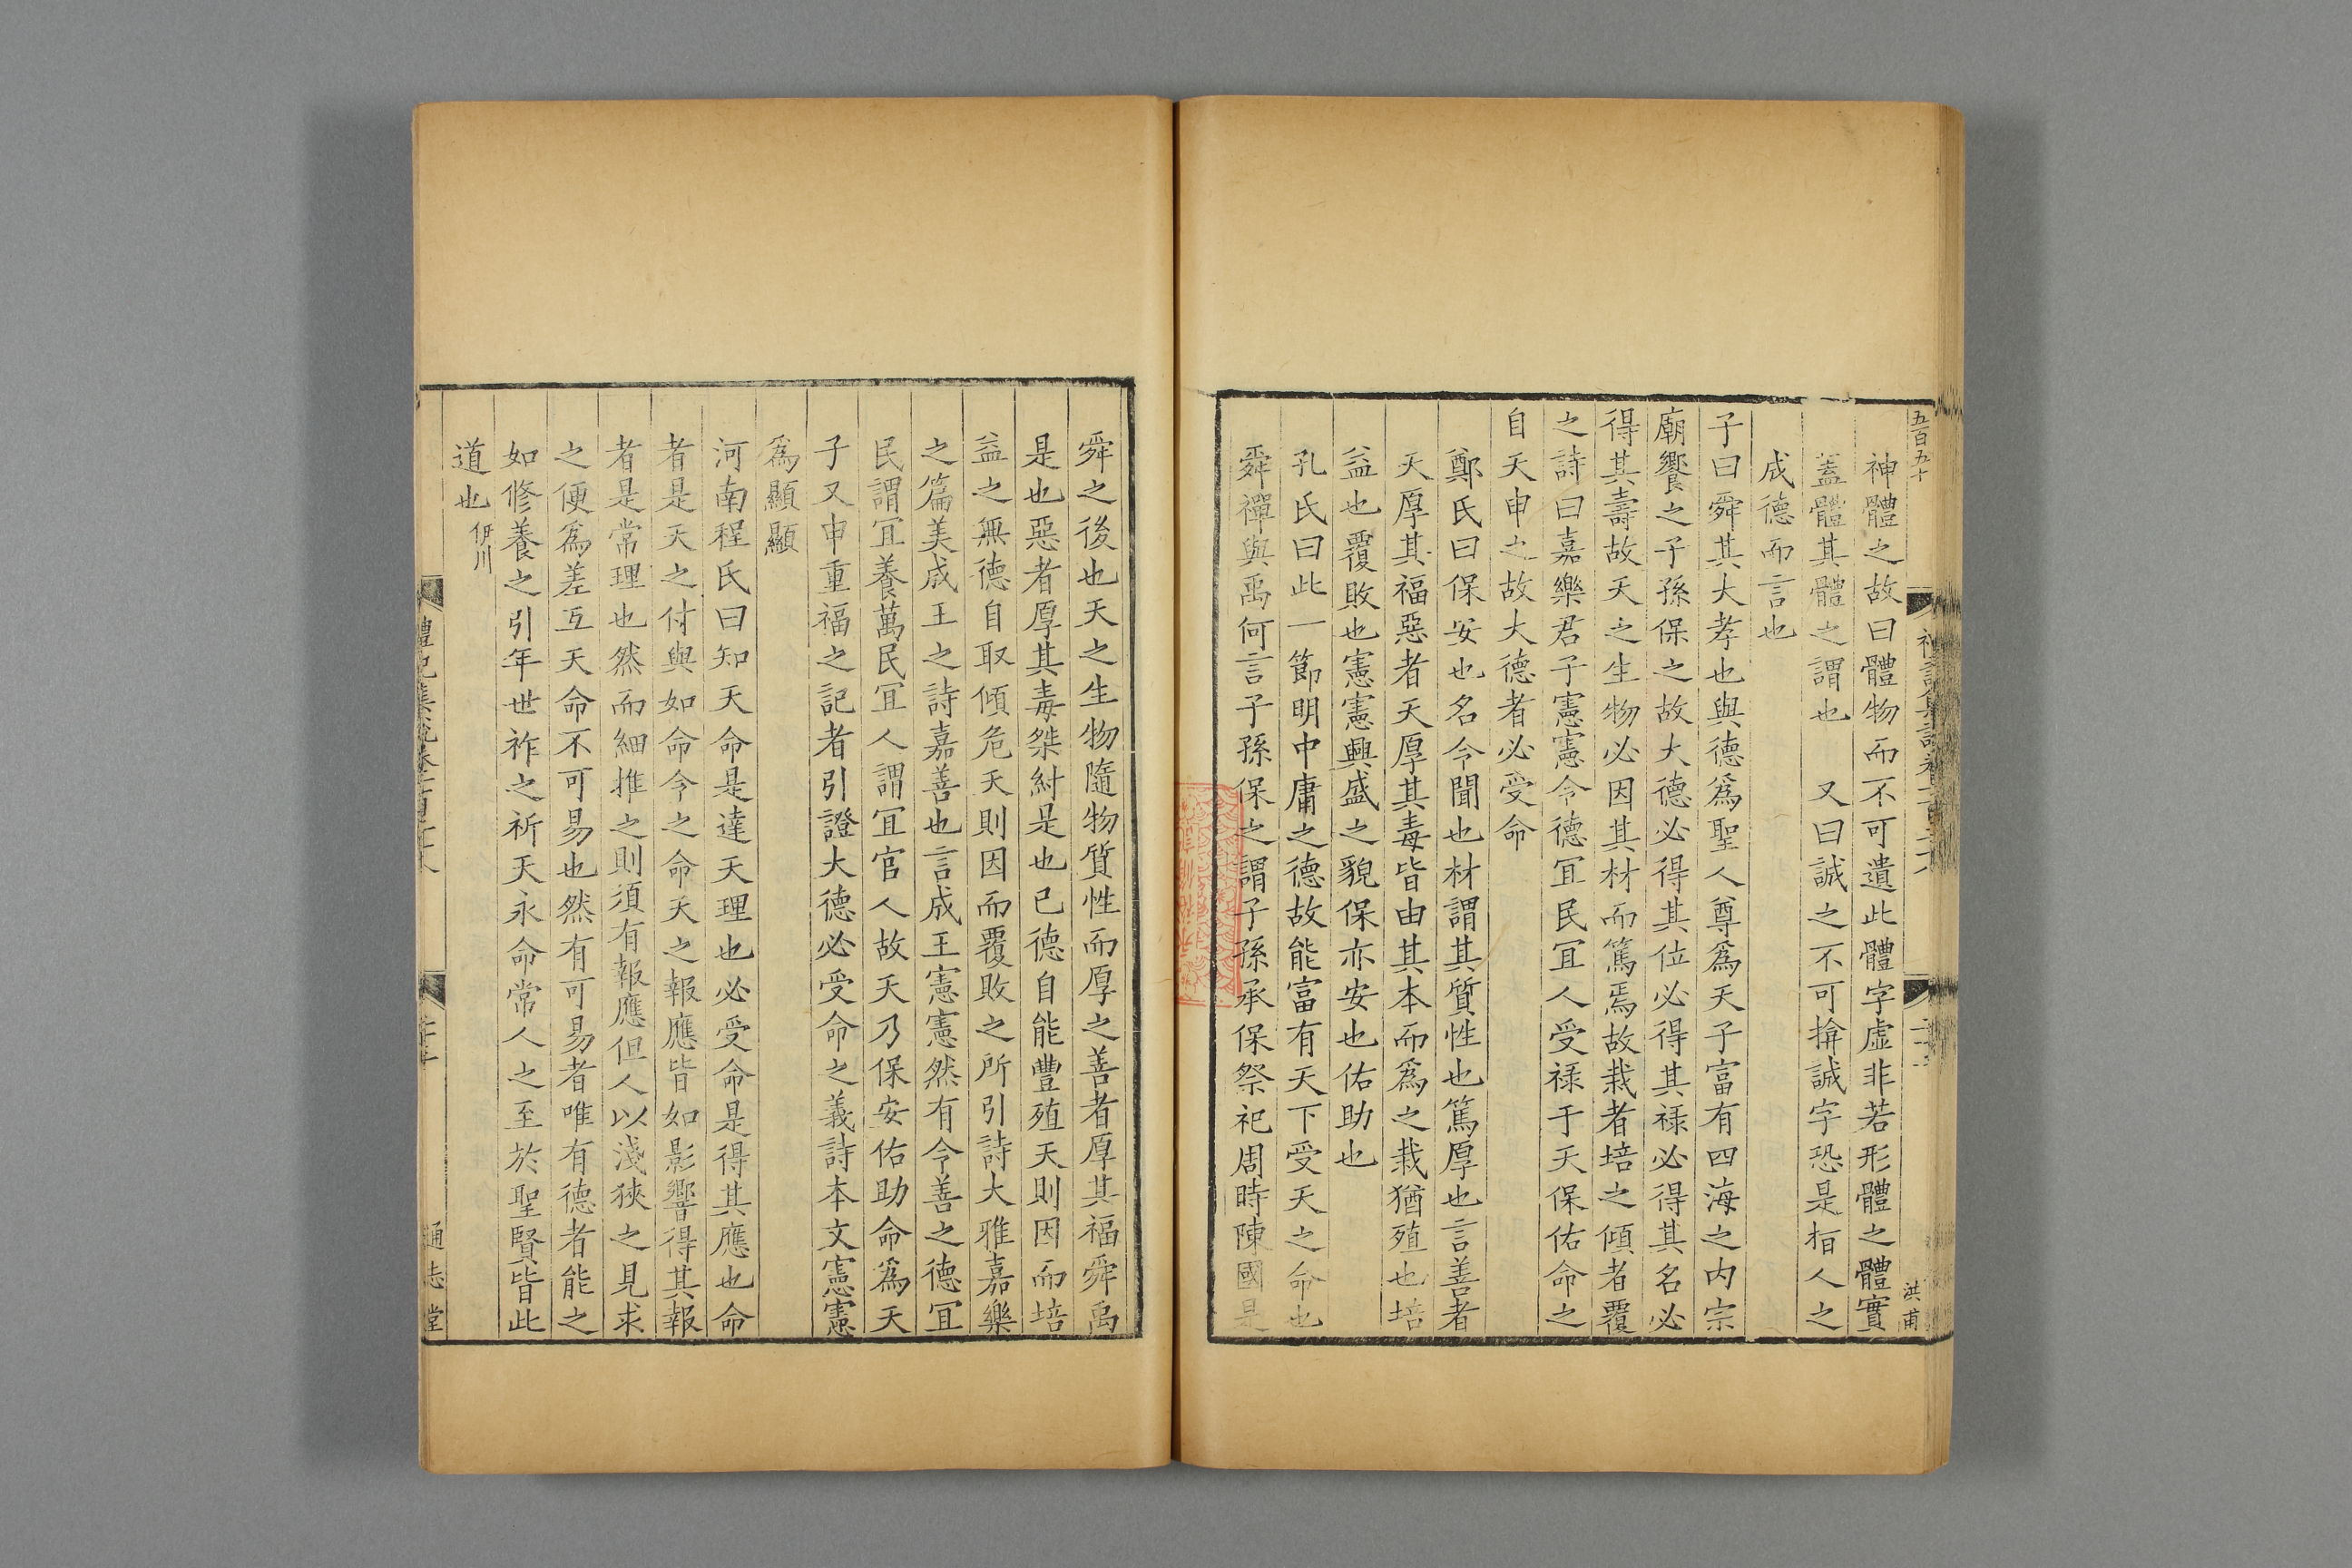 五百五十
神體之故曰體物而不可遺此體字虛非若形體之體實
蓋體其體之謂也　又曰誠之不可揜誠字恐是指人之
成德而言也
子曰舜其大孝也與德爲聖人尊爲天子富有四海之内宗
廟饗之子孫保之故大德必得其位必得其祿必得其名必
得其壽故天之生物必因其材而篤焉故栽者培之傾者覆
之詩曰嘉樂君子憲憲令德宜民宜人受祿于天保佑命之
自天申之故大德者必受命
鄭氏曰保安也名令聞也材謂其質性也篤厚也言善者
天厚其福惡者天厚其毒皆由其本而爲之栽猶殖也培
益也覆敗也憲憲興盛之貌保亦安也佑助也
孔氏曰此一節明中庸之德故能富有天下受天之命也
舜禪與禹何言子孫保之謂子孫承保祭祀周時陳國是
洪甫
舜之後也天之生物隨物質性而厚之善者厚其福舜禹
是也惡者厚其毒桀紂是也已德自能豐殖天則因而培
益之無德自取傾危天則因而覆敗之所引詩大雅嘉樂
之篇美成王之詩嘉善也言成王憲憲然有令善之德宜
民謂宜養萬民宜人謂宜官人故天乃保安佑助命爲天
子又申重福之記者引證大德必受命之義詩本文憲憲
爲顯顯
河南程氏曰知天命是達天理也必受命是得其應也命
者是天之付與如命令之命天之報應皆如影響得其報
者是常理也然而細推之則須有報應但人以淺狹之見求
之便爲差互天命不可易也然有可易者唯有德者能之
如修養之引年世祚之祈天永命常人之至於聖賢皆此
道也伊川
禮記集說卷一百二十八
通志堂